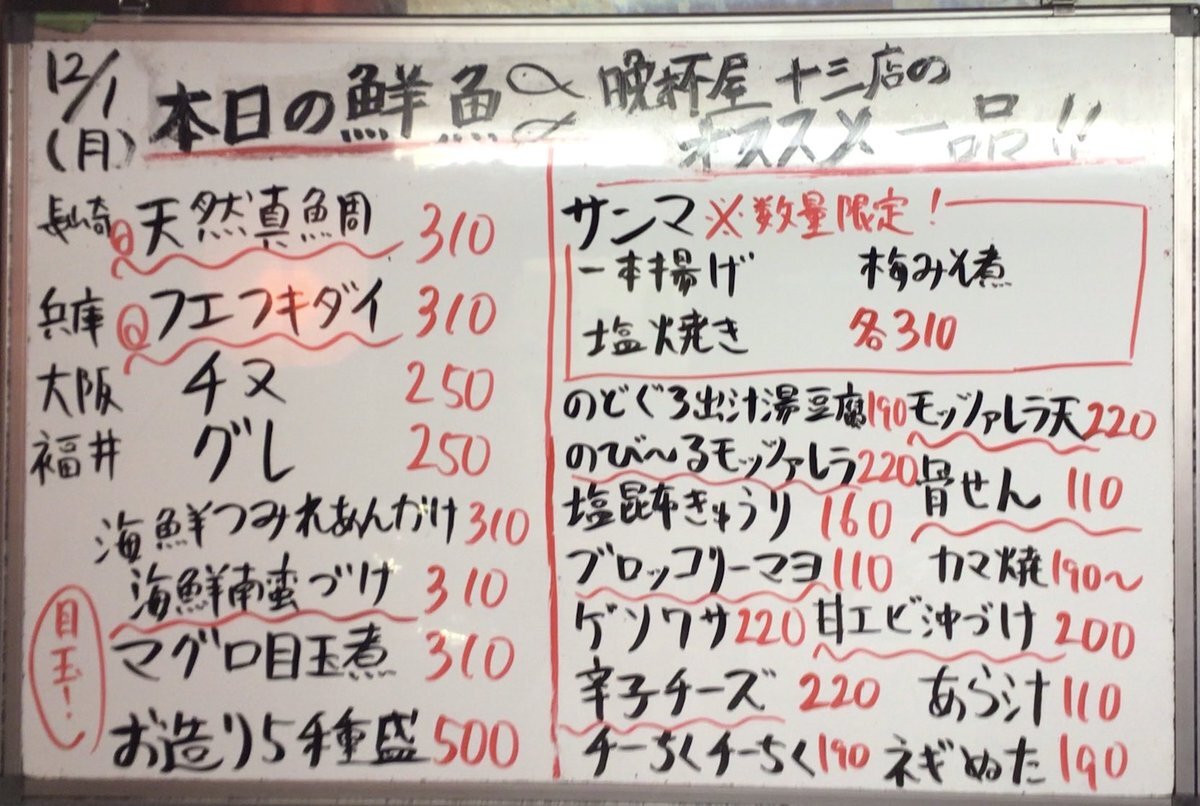 12/1
(月)
本日の鮮魚
長崎 天然真鯛 310
兵庫 フエフキダイ 310
大阪 チヌ 250
福井 グレ 250
海鮮つみれあんかけ 310
海鮮南蛮づけ 310
マグロ目玉煮 310
目玉!
お造り5種盛 500
晩杯屋 十三店の
オススメ一品!!
サンマ ※数量限定!
一本揚げ 梅みそ煮
塩焼き 各310
のどぐろ出汁湯豆腐 190 モッツァレラ天 220
のび~るモッヅァレラ 220 骨せん 110
塩昆布きゅうり 160
ブロッコリーマヨ 110 カマ焼 190~
ゲソワサ 220 甘エビ沖づけ 200
辛子チーズ 220 あら汁 110
チーちくチーちく 190 ネギぬた 190